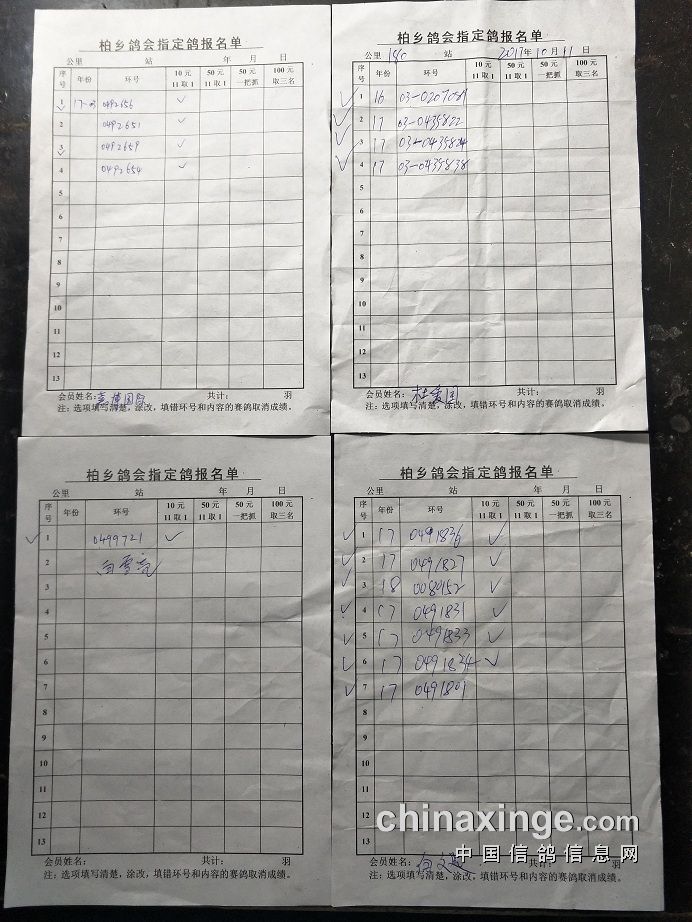 柏乡鸽会指定鸽报名单
公里 站 年 月 日
序号 年份 环号 10元 11取1 50元 11取1 50元 一把抓 100元 取三名
1 17-03 0492656 ✓
2 0492651 ✓
3 0492659 ✓
4 0492654 ✓
5
6
7
8
9
10
11
12
13
会员姓名: 国际 共计: 羽
注:选项填写清楚,涂改,填错环号和内容的赛鸽取消成绩。
柏乡鸽会指定鸽报名单
公里 150 站 2017年10月11日
序号 年份 环号 10元 11取1 50元 11取1 50元 一把抓 100元 取三名
✓ 1 16 03-0207089
✓ 2 17 03-0435822
✓ 3 17 03-0435824
✓ 4 17 03-0435838
5
6
7
8
9
10
11
12
13
会员姓名: 杜爱国 共计: 羽
注:选项填写清楚,涂改,填错环号和内容的赛鸽取消成绩。
柏乡鸽会指定鸽报名单
公里 站 年 月 日
序号 年份 环号 10元 11取1 50元 11取1 50元 一把抓 100元 取三名
✓ 1 0499721 ✓
2
3
4
5
6
7
8
9
10
11
12
13
会员姓名: 共计: 羽
注:选项填写清楚,涂改,填错环号和内容的赛鸽取消成绩。
柏乡鸽会指定鸽报名单
公里 站 年 月 日
序号 年份 环号 10元 11取1 50元 11取1 50元 一把抓 100元 取三名
✓ 1 17 0491836 ✓
✓ 2 17 0491827 ✓
✓ 3 18 0080152 ✓
✓ 4 17 0491831 ✓
✓ 5 17 0491833 ✓
✓ 6 17 0491834 ✓
✓ 7 17 0491801
8
9
10
11
12
13
会员姓名: 共计: 羽
注:选项填写清楚,涂改,填错环号和内容的赛鸽取消成绩。
chinaxinge.com
中国信鸽信息网